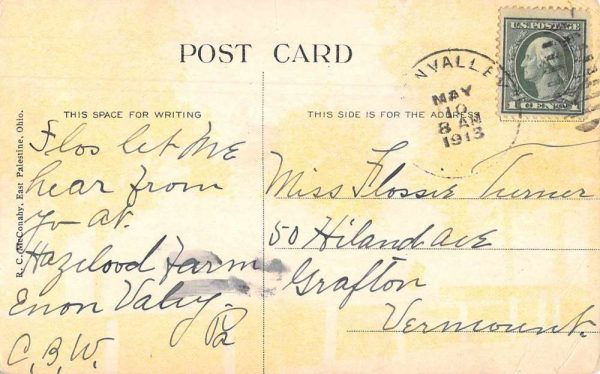 POST CARD
U.S. POSTAGE
NVALLEY
MAY
10
8 AM
1913
THIS SPACE FOR WRITING
THIS SIDE IS FOR THE ADDRESS
Flos let me
hear from
yo at.
Hazelood Farm
Enon Valy.
Pa
C.B.W.
Miss Flossie Turner
50 Hiland Ave
Grafton
Vermount.
R. C. McConahy, East Palestine, Ohio.